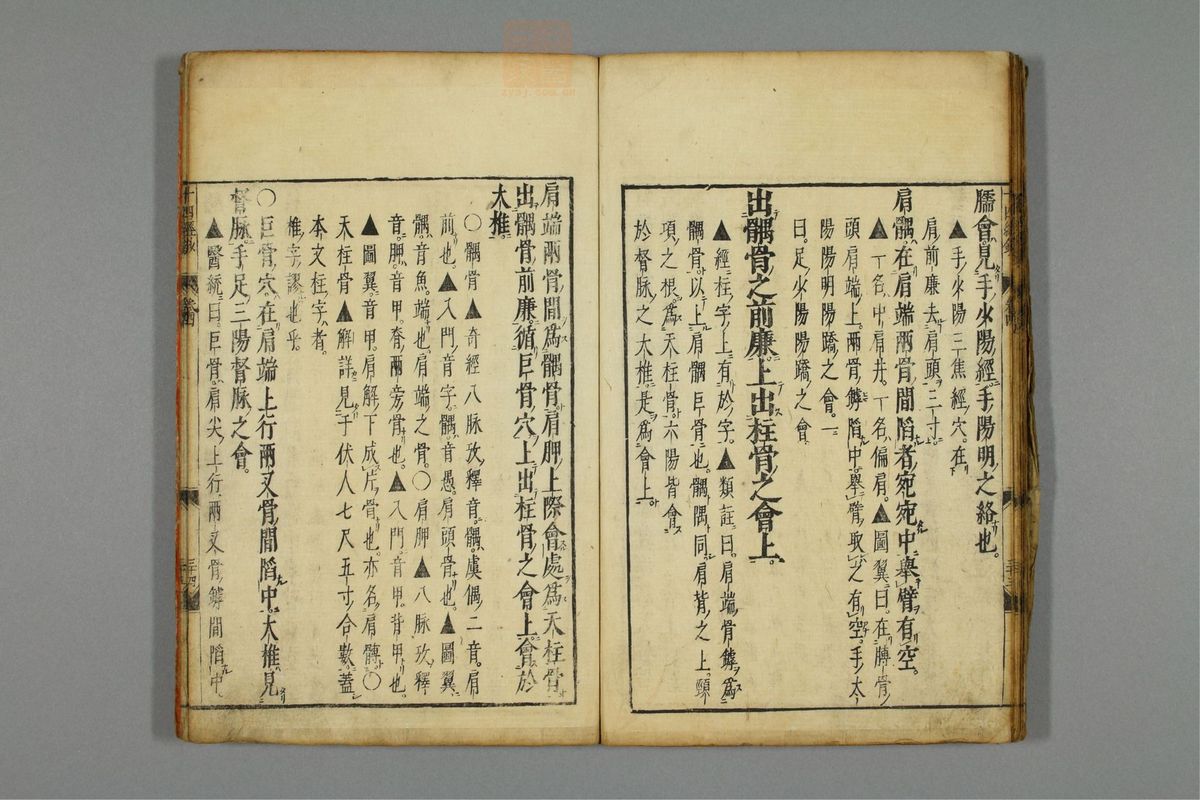 臑會見手少陽經手陽明之絡也。
▲手少陽三焦經穴。在
肩前廉去肩頭三寸。
肩髃在肩端兩骨間陷者宛宛中舉臂有空。
▲一名中肩井。一名偏肩。▲圖翼曰。在膊骨
頭肩端上。兩骨罅陷中。舉臂取之有空。手太
陽陽明陽蹻之會。一
曰。足少陽陽蹻之會。
出髃骨之前廉上出柱骨之會上。
▲經柱字上有於字。▲類註曰。肩端骨罅爲
髃骨。以上肩髃巨骨也。髃隅同。肩背之上。頸
項之根。爲天柱骨。六陽皆會
於督脉之大椎。是爲會上。
肩端兩骨間爲髃骨肩胛上際會處爲天柱骨
出髃骨前廉循巨骨穴上出柱骨之會上會於
大椎。
○髃骨▲奇經八脉攷釋音。髃。虞偶二音。肩
前也。▲入門。音字。髃。音愚。肩頭骨也。▲圖翼。
髃。音魚。端也。肩端之骨。○肩胛▲八脉攷釋
音。胛。音甲。脊兩旁骨也。▲入門。音甲。背甲也。
▲圖翼。音甲。肩解下成片骨也。亦名肩髆。○
天柱骨▲解詳見于伏人七尺五寸合數。蓋
本文柱字者。
椎字謬也乎。
○巨骨穴在肩端上行兩叉骨間陷中。大椎見
督脉手足三陽督脉之會。
▲醫統曰。巨骨。肩尖上行。兩叉骨罅間陷中。